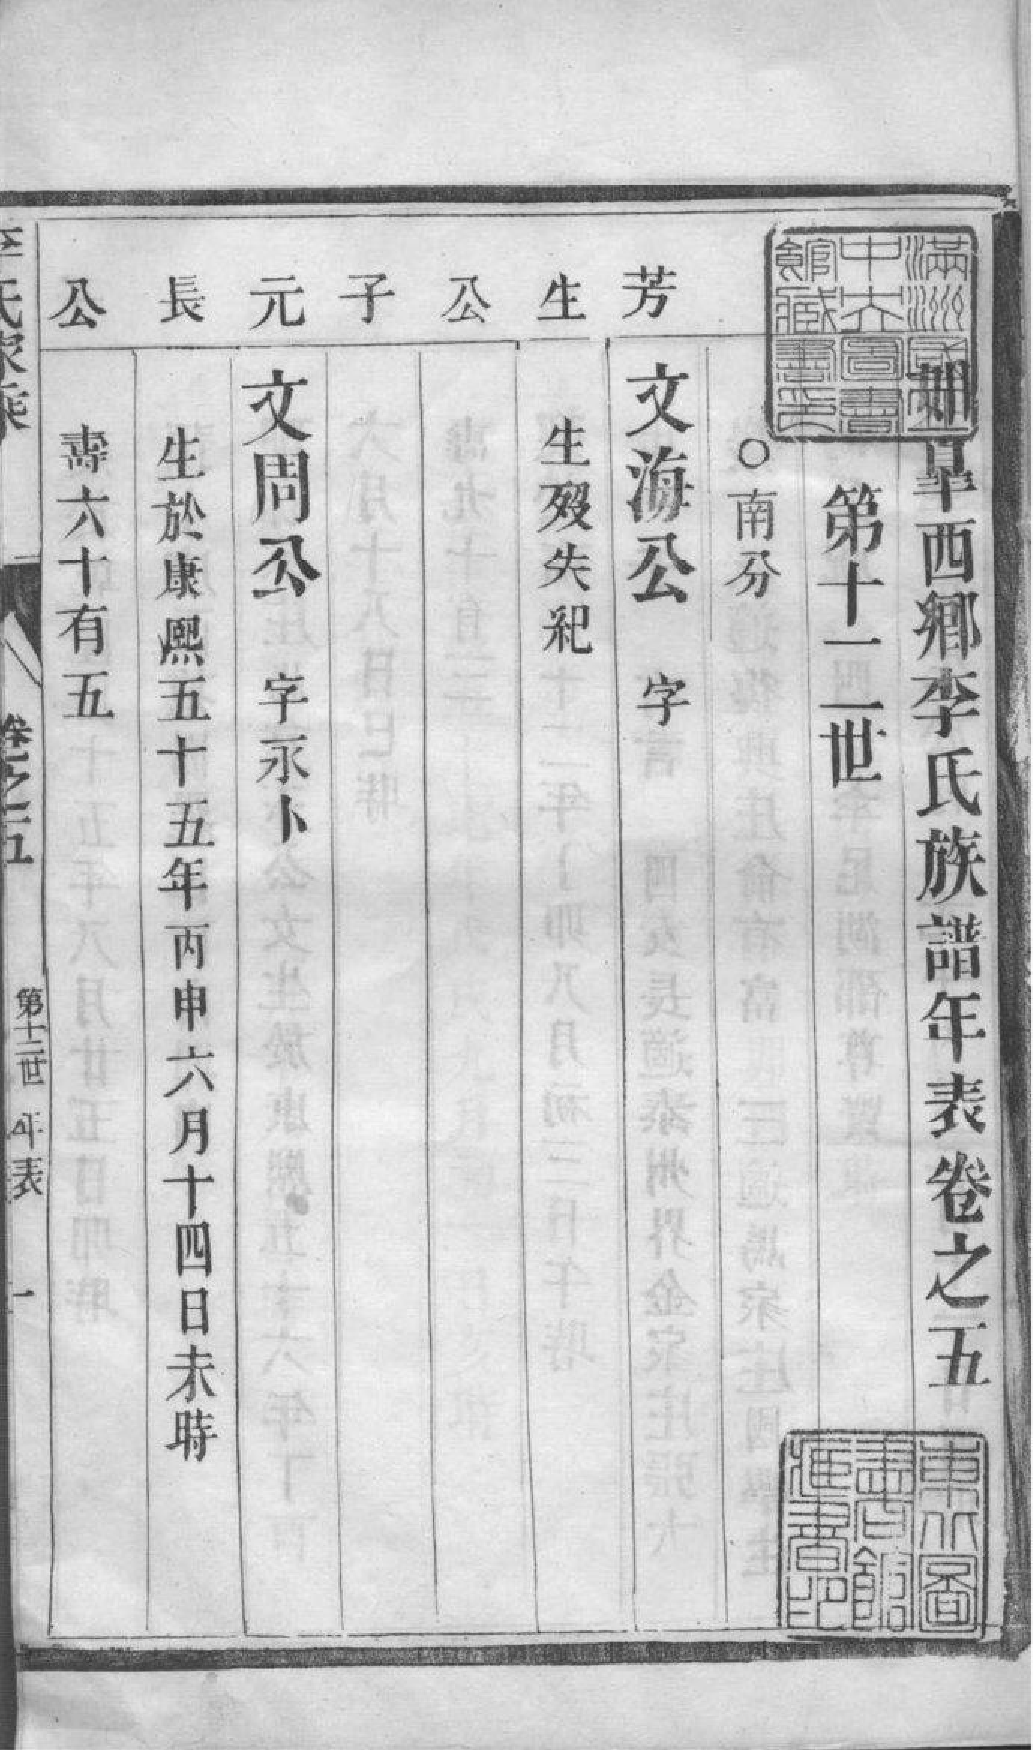 如皐西鄉李氏族譜年表卷之五
第十二世
○南分
芳
文海公　字
生
生歿失紀
公
子
元
文周公　字永卜
長
生於康熙五十五年丙申六月十四日未時
公
壽六十有五
李氏家乘
卷之五
第十二世 年表
一
滿洲國立
中央圖書
館藏書印
東北圖
書館
藏書印